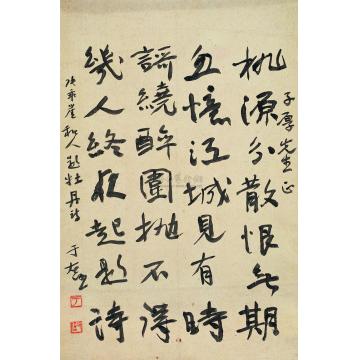 子厚先生正
桃源分散恨無期
憶江城見有時
謌繞醉圍抛不得
幾人終夜起題詩
次乖崖和人題牡丹詩 于右任